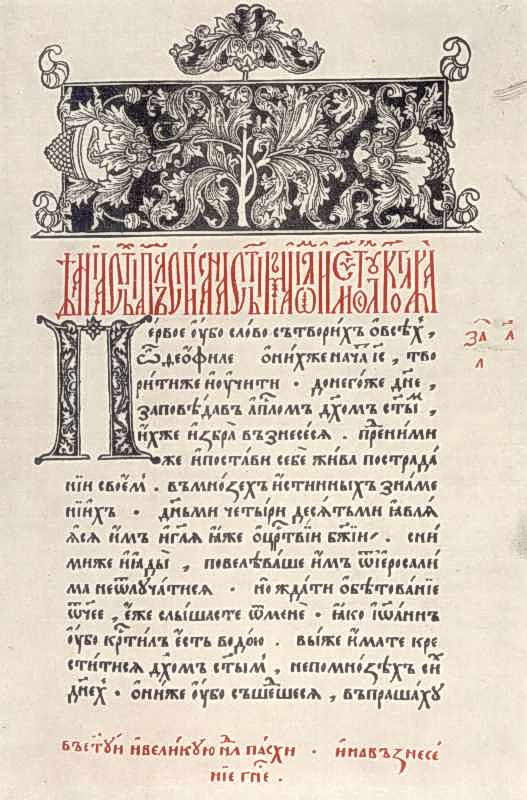 Первое ѹ҆бо сло́во сътвори́хъ ѡ҆всѣ́хⸯ,
ѽ ѳео́филе ѡ҆ни́хже нача́ т і҆с҃, тво
ри́тиже и҆ѹ҆чи́ти · донего́же дн҃е,
заповѣ́давъ а҆пⷭ҇ломъ дх҃омъ ст҃ы́мⸯ,
и҆́хже и҆збра̀ възнесе́сѧ . преⷣни́ми
же и҆поста́ви себѐ жи́ва пострада́
нїи свое́мⸯ . въмно́зехъ и҆́стинныхъ зна́ме
нїихъ · дн҃ьми четы́ри десѧтьми ꙗ҆влѧ́
ѧсѧ и҆̀мъ и҆гл҃ѧ ꙗ҆́же ѡ҆црⷭ҇твїи бж҃їи . сни́
миже и҆ꙗ҆ды́й, повелѣва́ше и҆̀мъ ѿі҆еросали́
ма неѿлꙋча́тисѧ · но жда́ти ѡ҆бѣтова́нїе
ѿч҃ее, є҆́же слы́шасте ѿменѐ · ꙗ҆́ко і҆ѡ҆а́ннъ
ѹ҆́бо крⷭ҇ти́лъ є҆́сть водо́ю . вы́же и҆́мате кре
сти́тисѧ дх҃омъ ст҃ы́мⸯ, непомно́зѣхъ си́хⸯ
дн҃ехⸯ · ѡ҆ни́же ѹ҆́бо съше́дшесѧ, въпраша́хꙋ
За҄ а҃
л
въст҃ꙋ́ю и҆вели́кꙋю нⷣлю па́схи · и҆навъзнесе́
нїе гⷭ҇не .